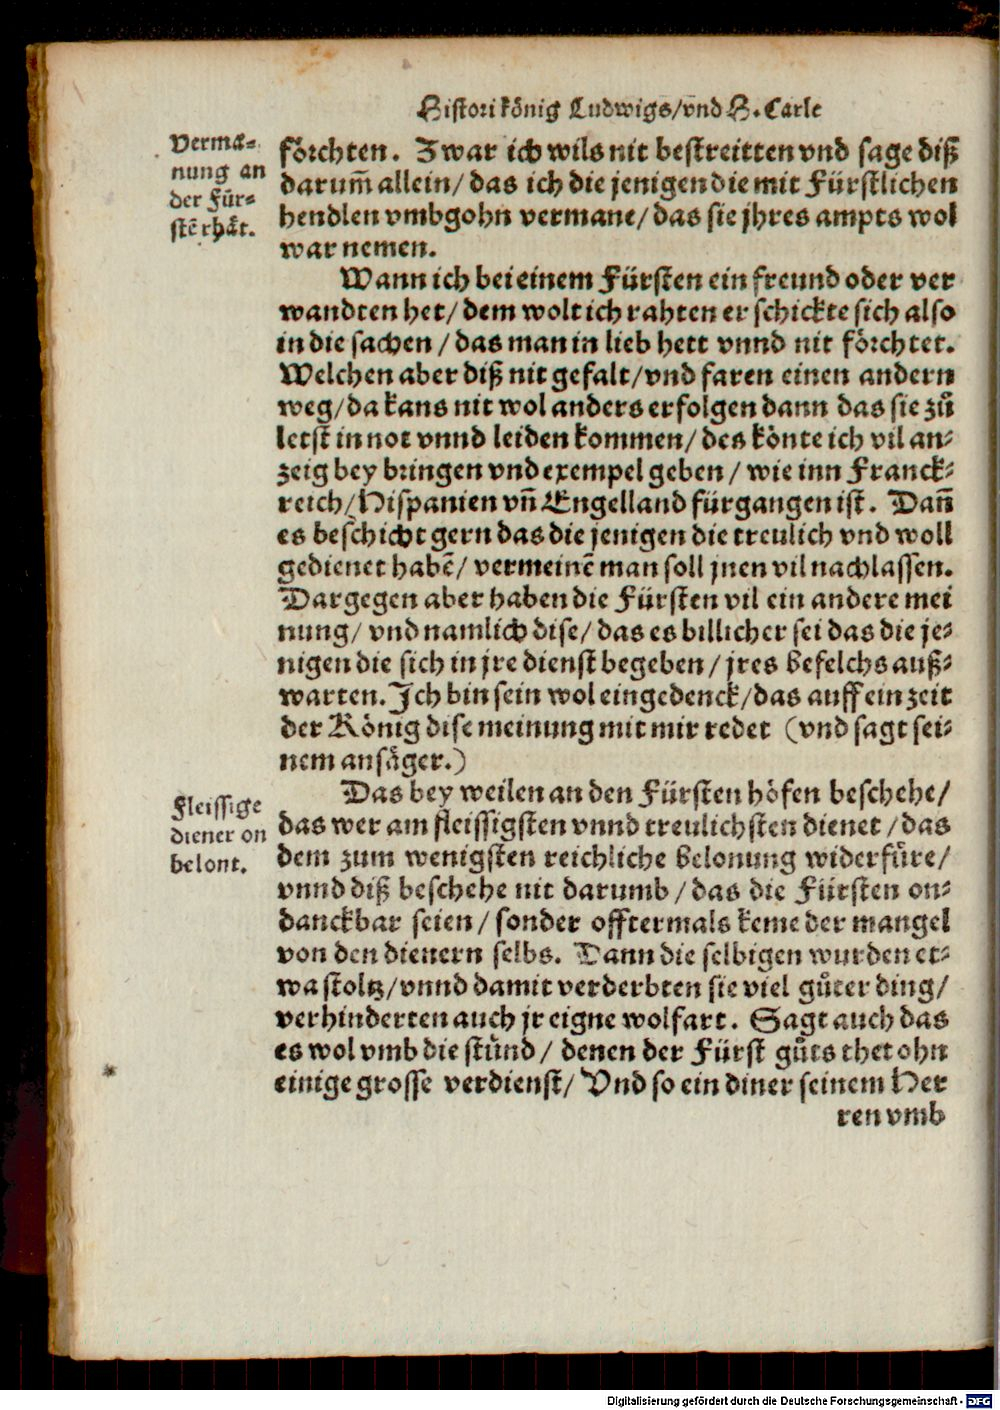 Histori könig Ludwigs/vnd H. Carle
Vermā-
nung an
der Für-
stē rhät.
förchten. Zwar ich wils nit bestreitten vnd sage diß
darum̄ allein/ das ich die jenigen die mit Fürstlichen
hendlen vmbgohn vermane/ das sie jhres ampts wol
war nemen.
Wann ich bei einem Fürsten ein freund oder ver
wandten het/ dem wolt ich rahten er schickte sich also
in die sachen/ das man in lieb hett vnnd nit förchtet.
Welchen aber diß nit gefalt/vnd faren einen andern
weg/da kans nit wol anders erfolgen dann das sie zů
letst in not vnnd leiden kommen/ des könte ich vil an-
zeig bey bringen vnd exempel geben/ wie inn Franck-
reich/Hispanien vn̄ Engelland fürgangen ist. Dan̄
es beschicht gern das die jenigen die treulich vnd woll
gedienet habē/ vermeinē man soll jnen vil nachlassen.
Dargegen aber haben die Fürsten vil ein andere mei
nung/ vnd namlich dise/ das es billicher sei das die je-
nigen die sich in jre dienst begeben/ jres befelchs auß-
warten. Ich bin sein wol eingedenck/das auff ein zeit
der König dise meinung mit mir redet (vnd sagt sei-
nem ansäger.)
Fleissige
diener on
belont.
Das bey weilen an den Fürsten höfen beschehe/
das wer am fleissigsten vnnd treulichsten dienet/das
dem zum wenigsten reichliche belonung widerfüre/
vnnd diß beschehe nit darumb/ das die Fürsten on-
danckbar seien/ sonder offtermals keme der mangel
von den dienern selbs. Dann die selbigen wurden et-
wa stoltz/vnnd damit verderbten sie viel gůter ding/
verhinderten auch jr eigne wolfart. Sagt auch das
es wol vmb die stünd/ denen der Fürst gůts thet ohn
einige grosse verdienst/ Vnd so ein diner seinem Her
ren vmb
Digitalisierung gefördert durch die Deutsche Forschungsgemeinschaft - DFG